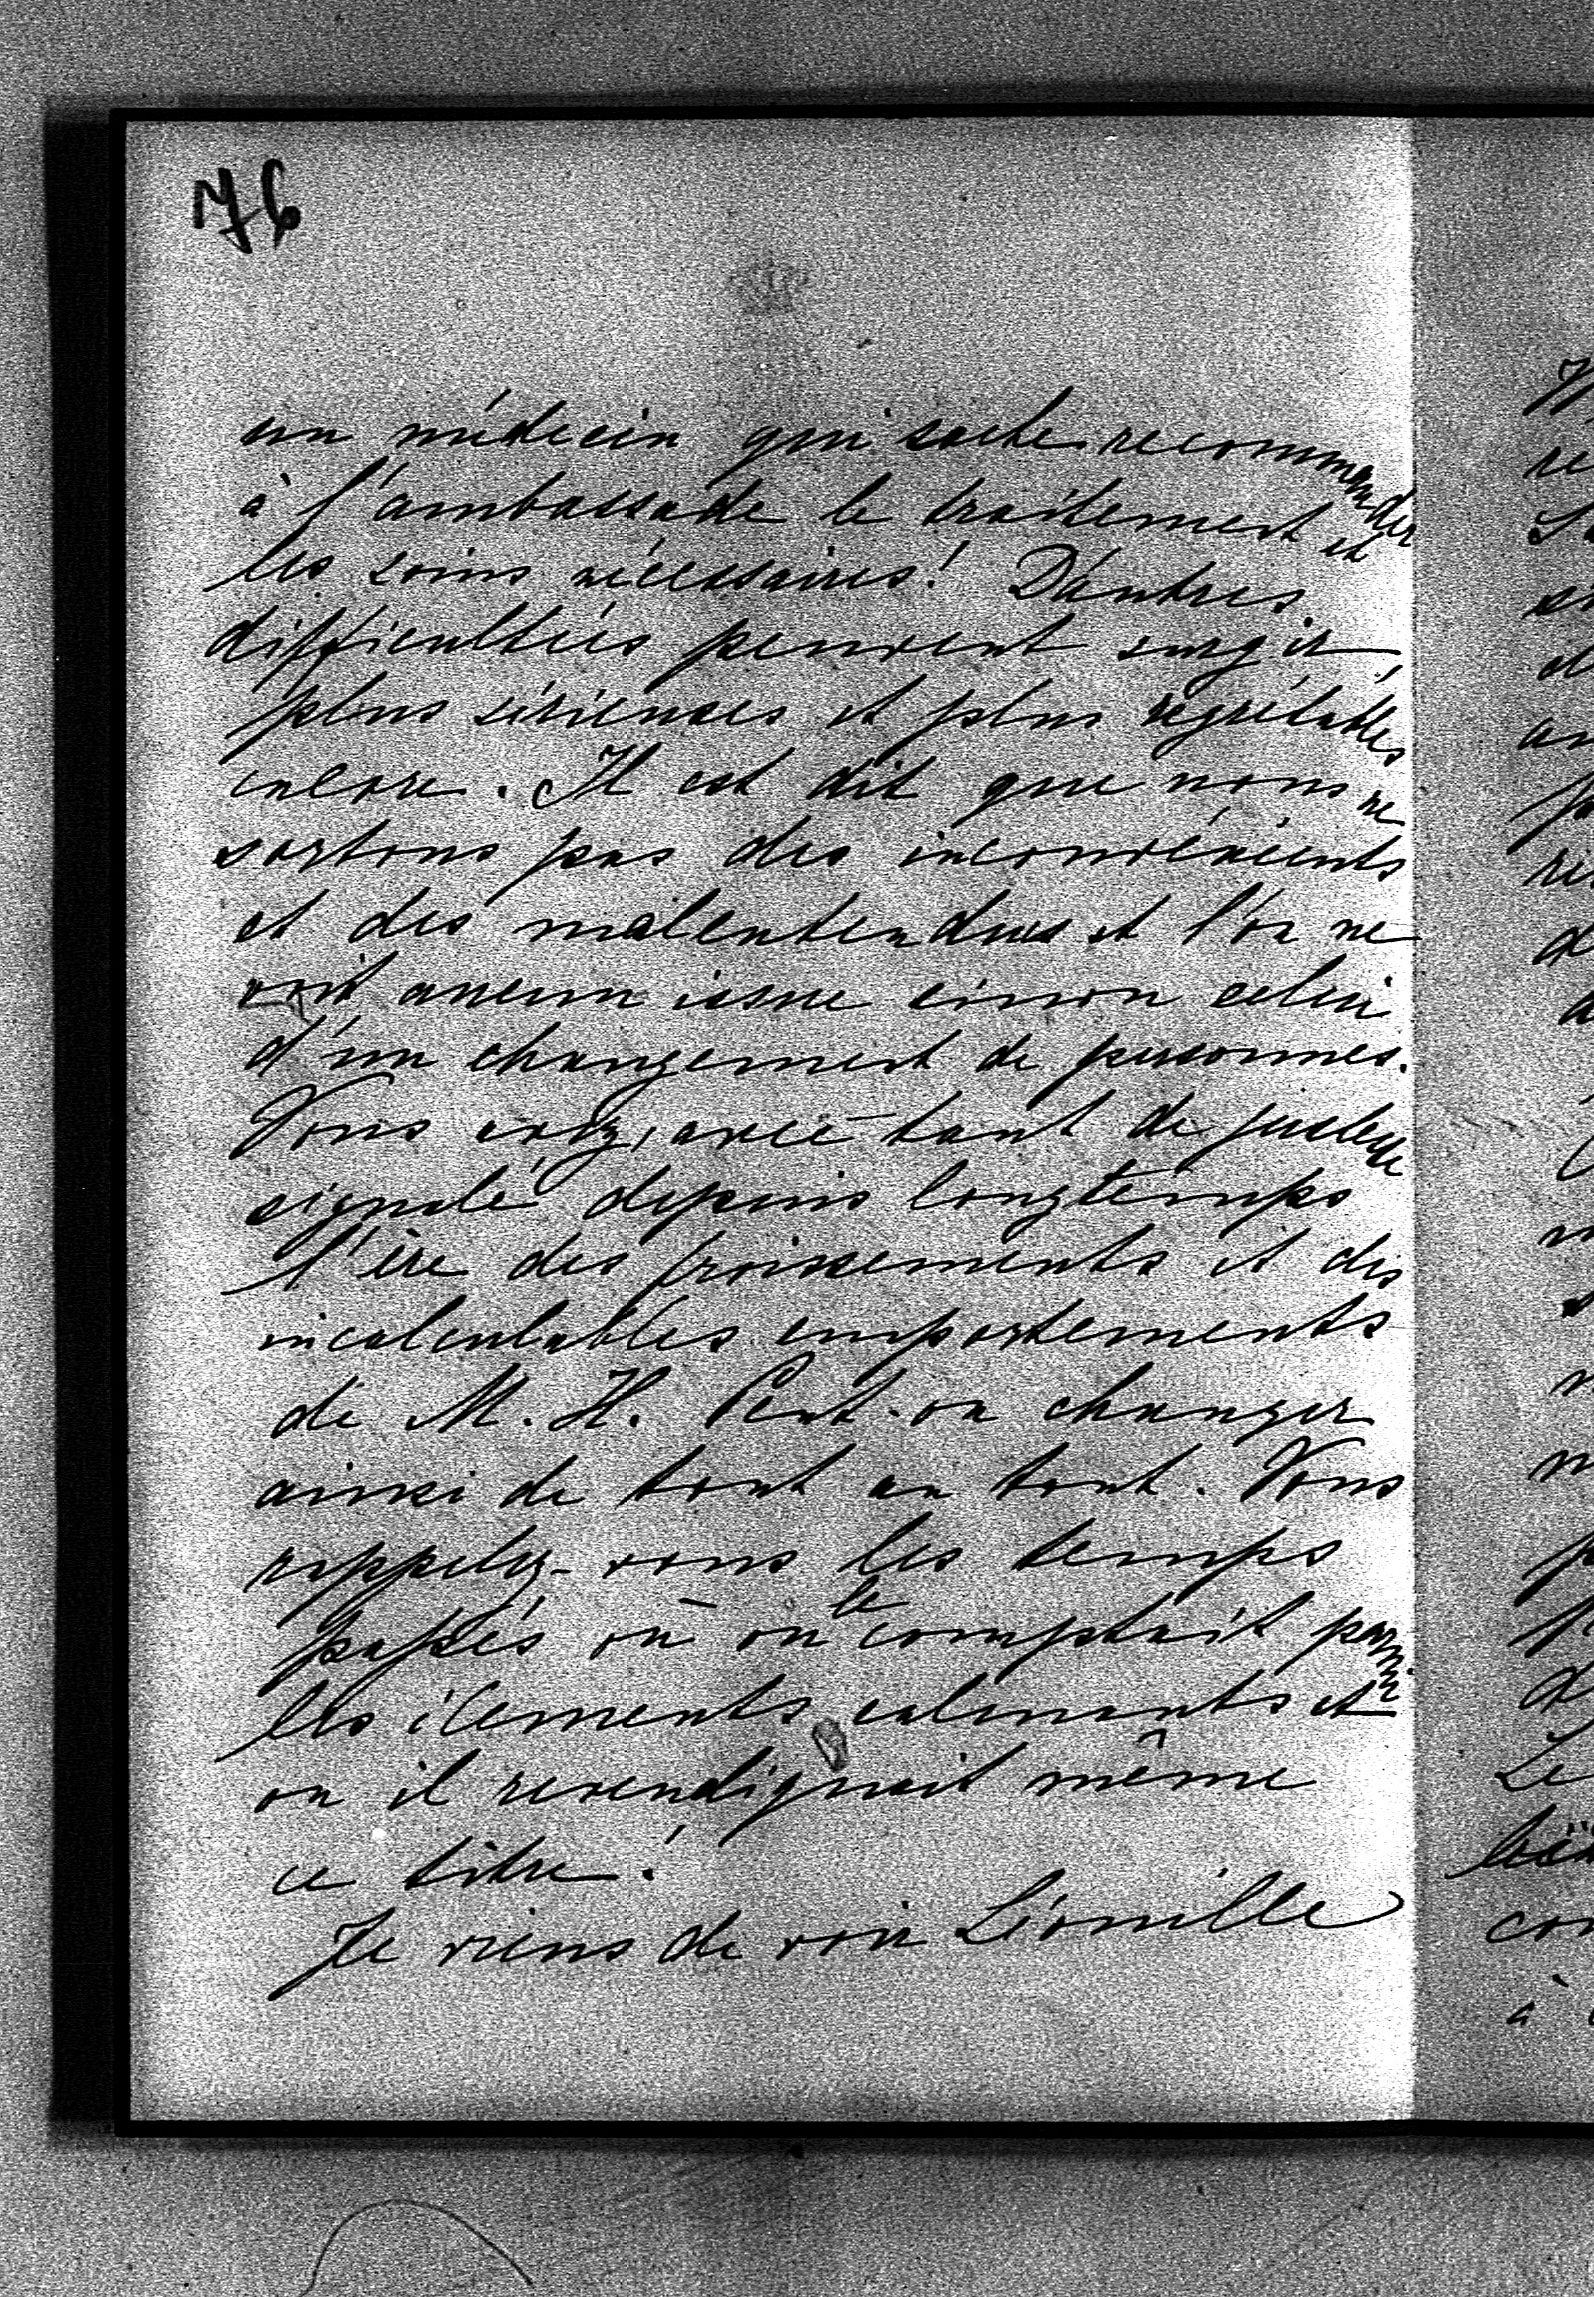 76
un médecin qui sache recommander
à l'ambassade le traitement et
les soins nécessaires! D'autres
difficultées peuvent surgir
plus sérieuses et plus régrétables
encore. Il est dit que nous ne
sortons pas des inconvénients
et des malentendus et l'on ne
voit aucun issue sinon celui
d'un changement de personnes.
Vous avez, avec tant de justesse
signalé depuis longtemps
l'ère des froissements et des
incalculables emportements
de M. H. Peut-on changer
ainsi de tout en tout. Vous
rappelez-vous les temps
passés où on le comptait parmi
les élements calmants et
ou il revendiquait même
ce titre!
Je viens de voir Léonille